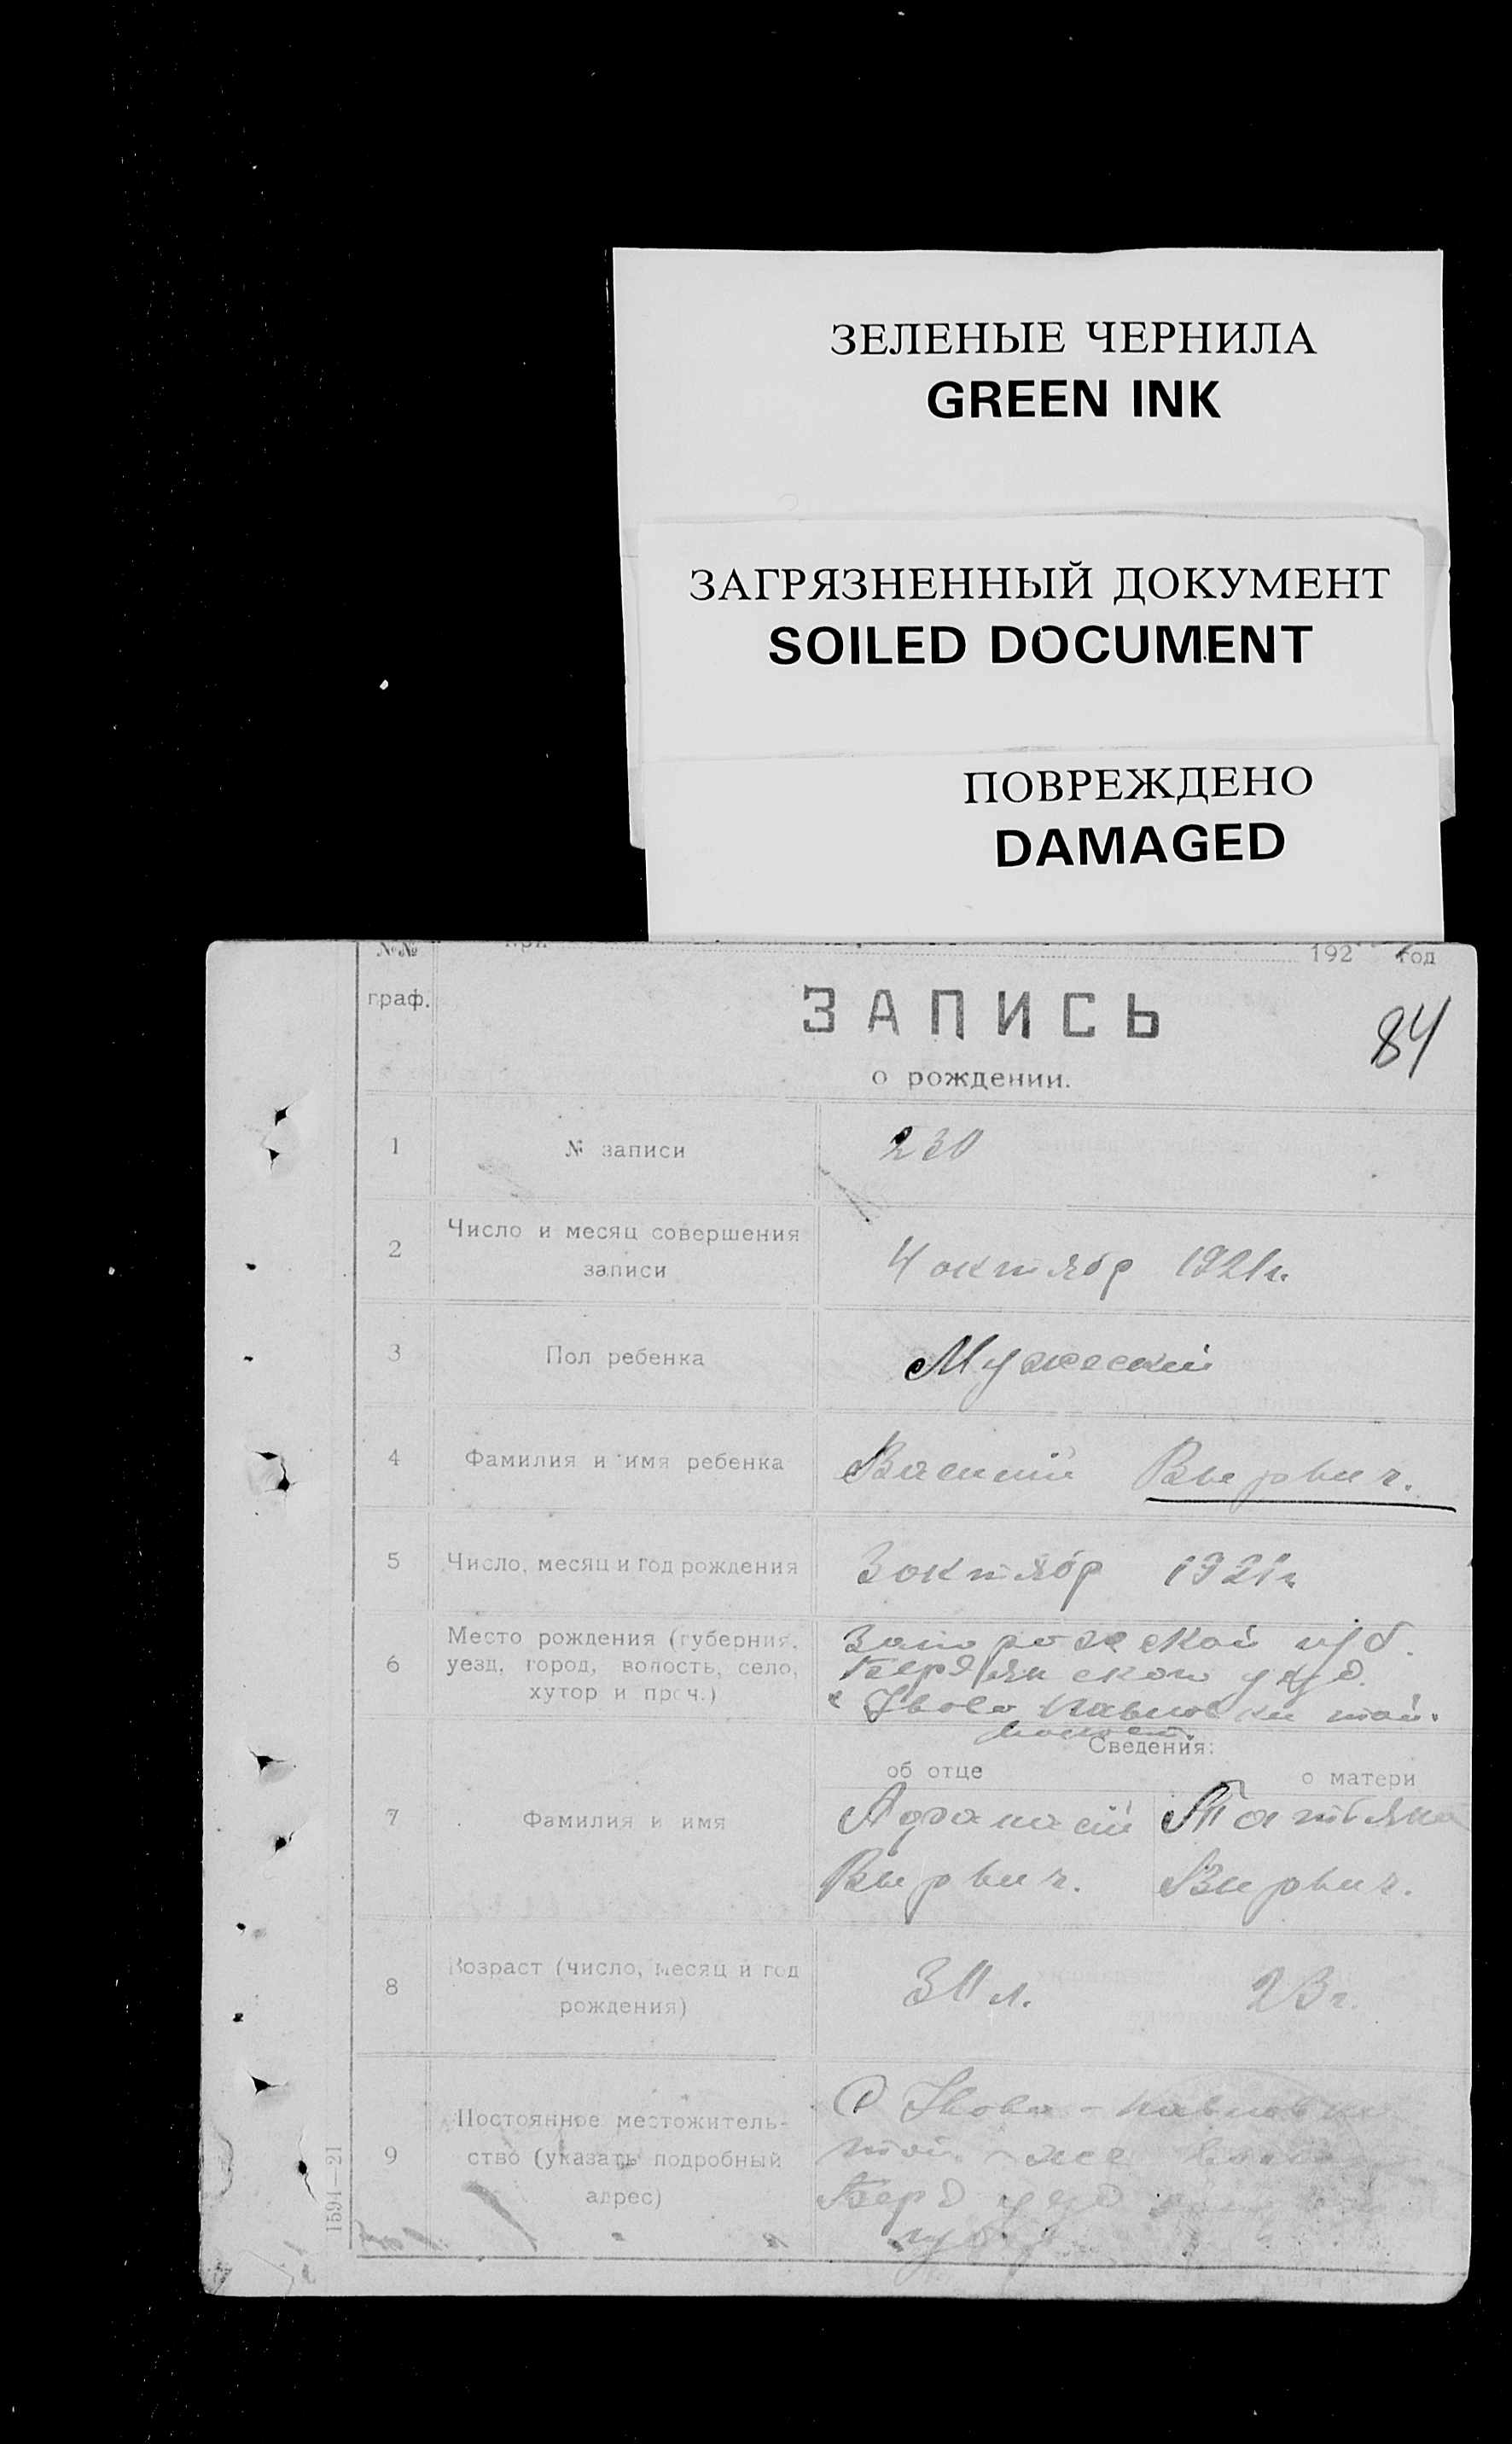 ЗЕЛЕНЫЕ ЧЕРНИЛА
GREEN INK
ЗАГРЯЗНЕННЫЙ ДОКУМЕНТ
SOILED DOCUMENT
ПОВРЕЖДЕНО
DAMAGED
№№ 192 год
граф.
ЗАПИСЬ
84
о рождении.
1 № записи 230
2 Число и месяц совершения
записи
4 октябр 1921 г.
3 Пол ребенка Мужеский
4 Фамилия и имя ребенка Василий Вирвич.
5 Число, месяц и год рождения 3 октябр 1921 г
6 Место рождения (губерния,
уезд, город, волость, село,
хутор и проч.)
Запорожской губ.
Бердянской уезд.
с Ново Павловки той.
Сведения:
об отце о матери
7 Фамилия и имя
Афанасий Татьяна
Вирвич. Вирвич.
8 Возраст (число, месяц и год
рождения)
31 л. 23 г.
9 Постоянное местожитель-
ство (указать подробный
адрес)
С Ново-Павловки
той же
Берд уезд
губ
1594—21